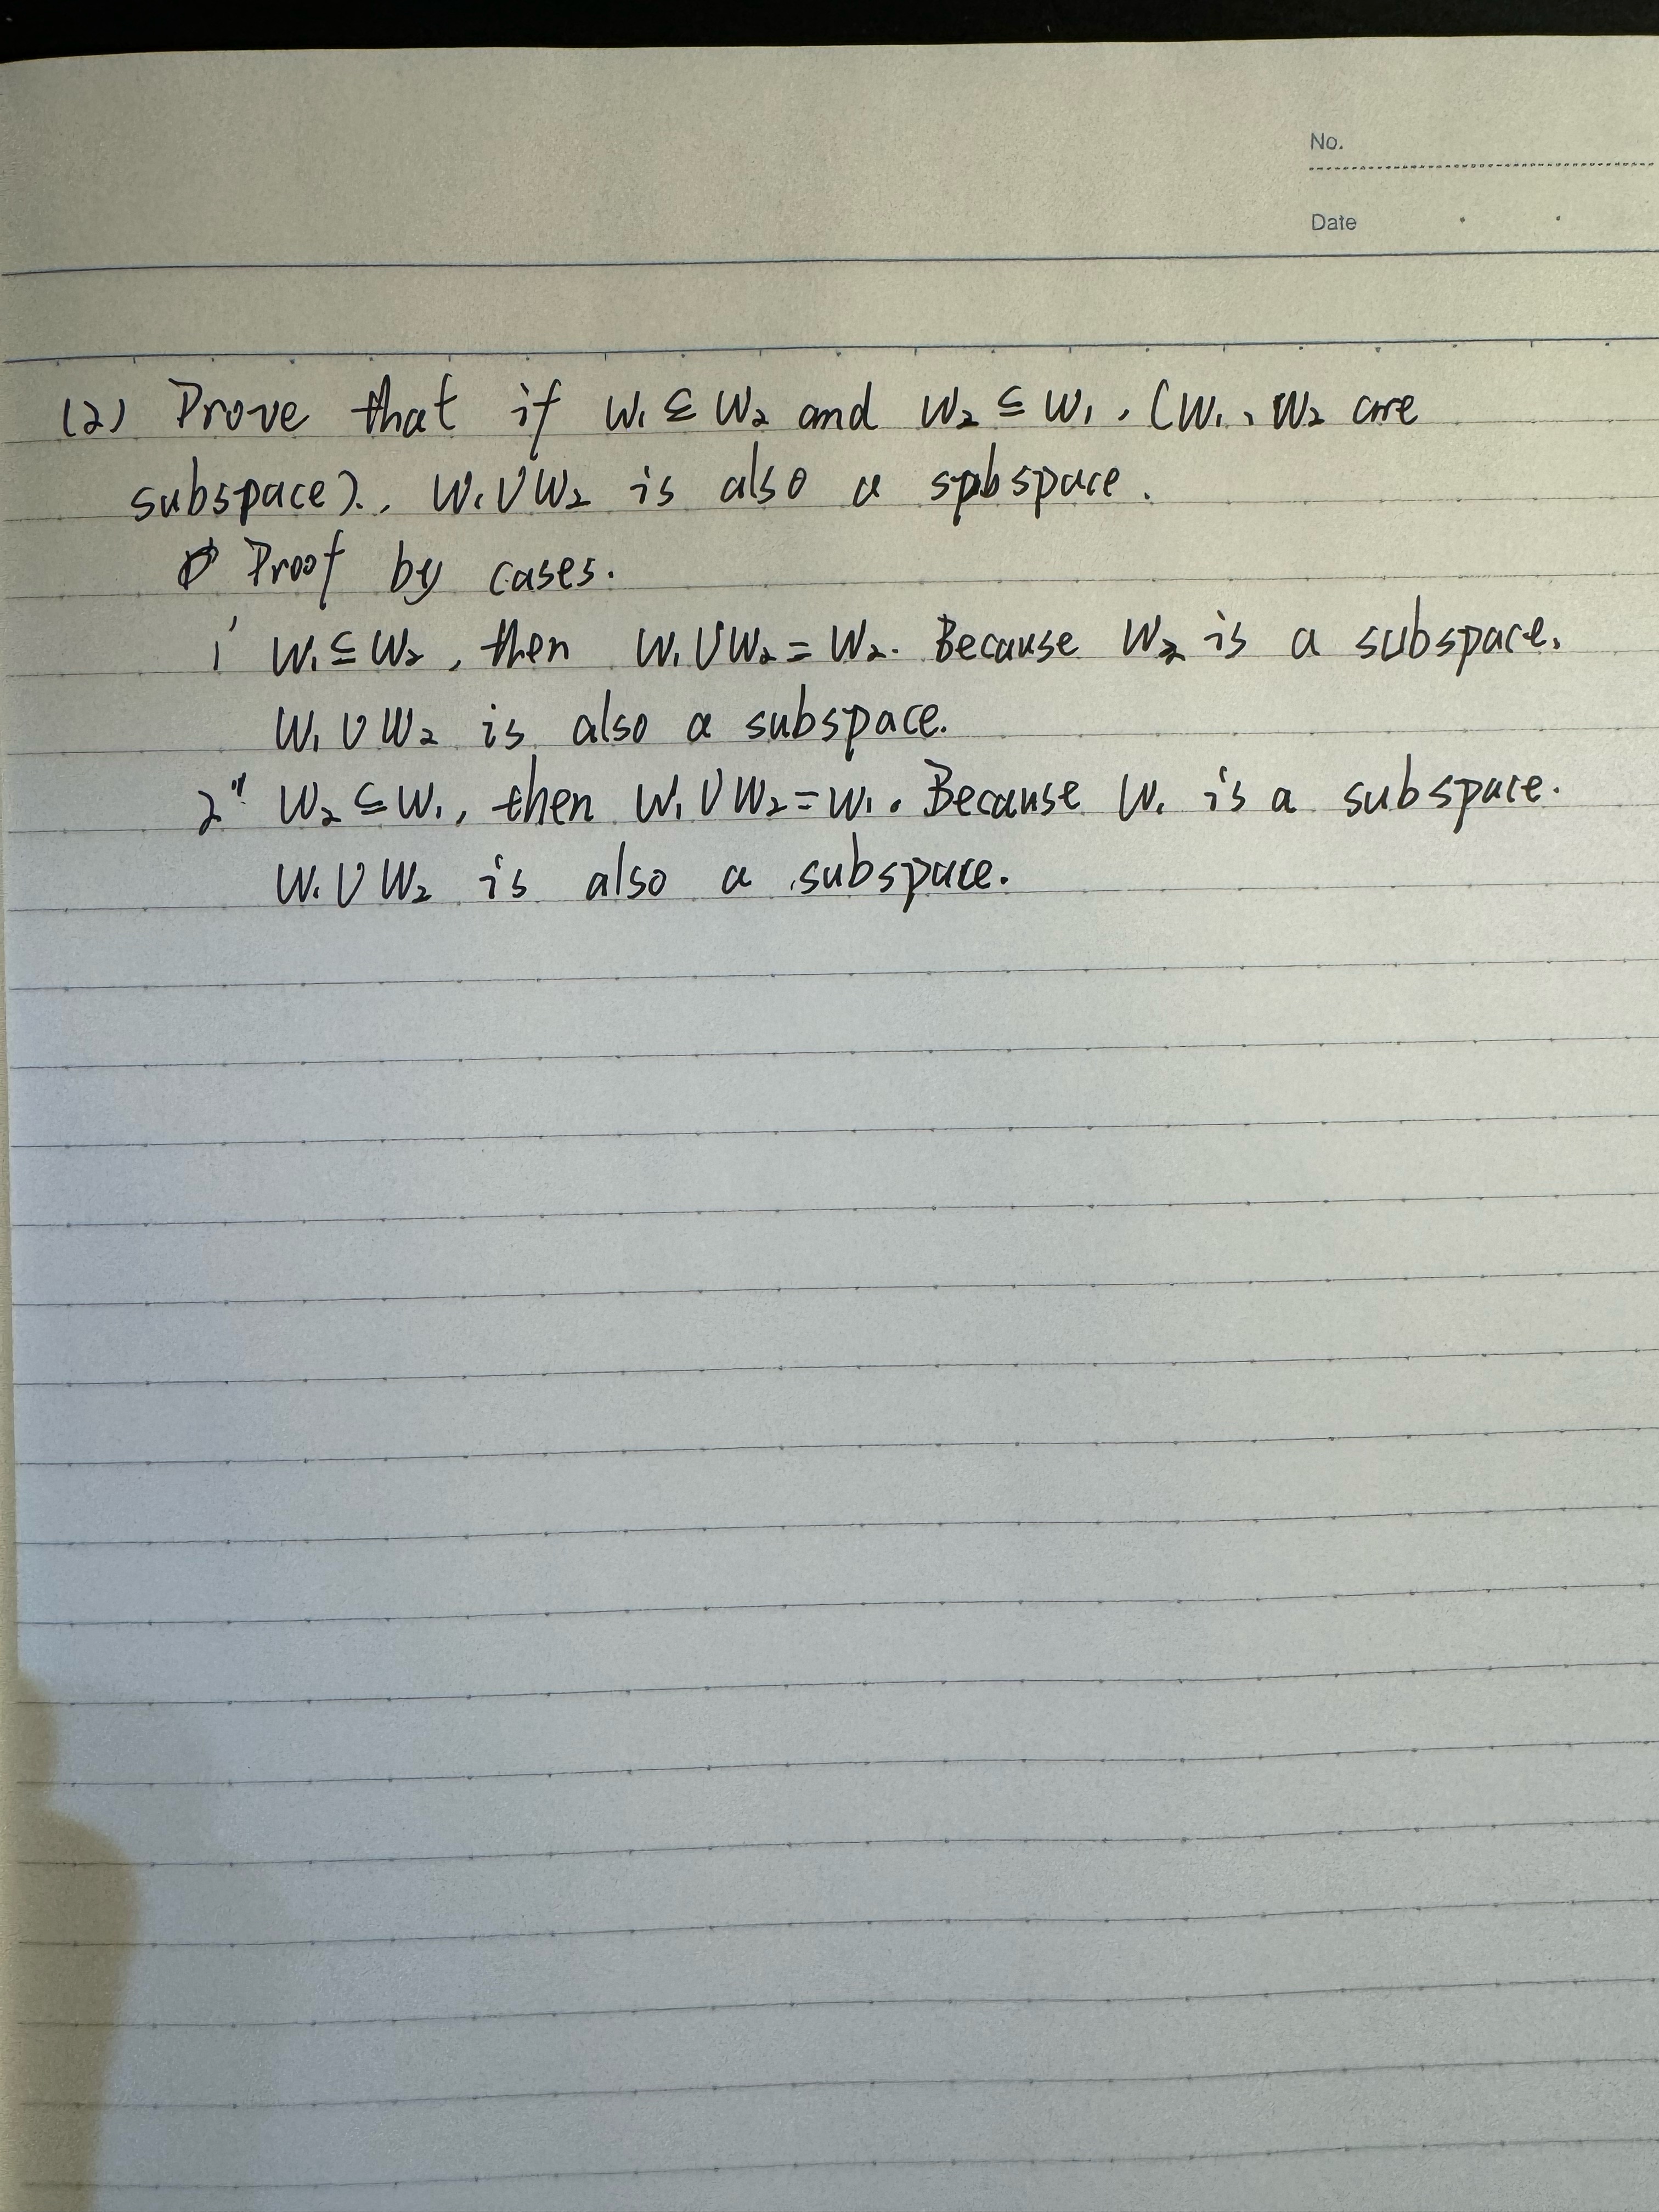 No.
Date
(2) Prove that if W₁ ⊆ W₂ and W₂ ⊆ W₁. (W₁, W₂ are
subspace)., W₁∪W₂ is also a subspace.
Proof by cases.
1' W₁⊆W₂, then W₁∪W₂=W₂. Because W₂ is a subspace.
W₁∪W₂ is also a subspace.
2" W₂⊆W₁, then W₁∪W₂=W₁. Because W₁ is a subspace.
W₁∪W₂ is also a subspace.